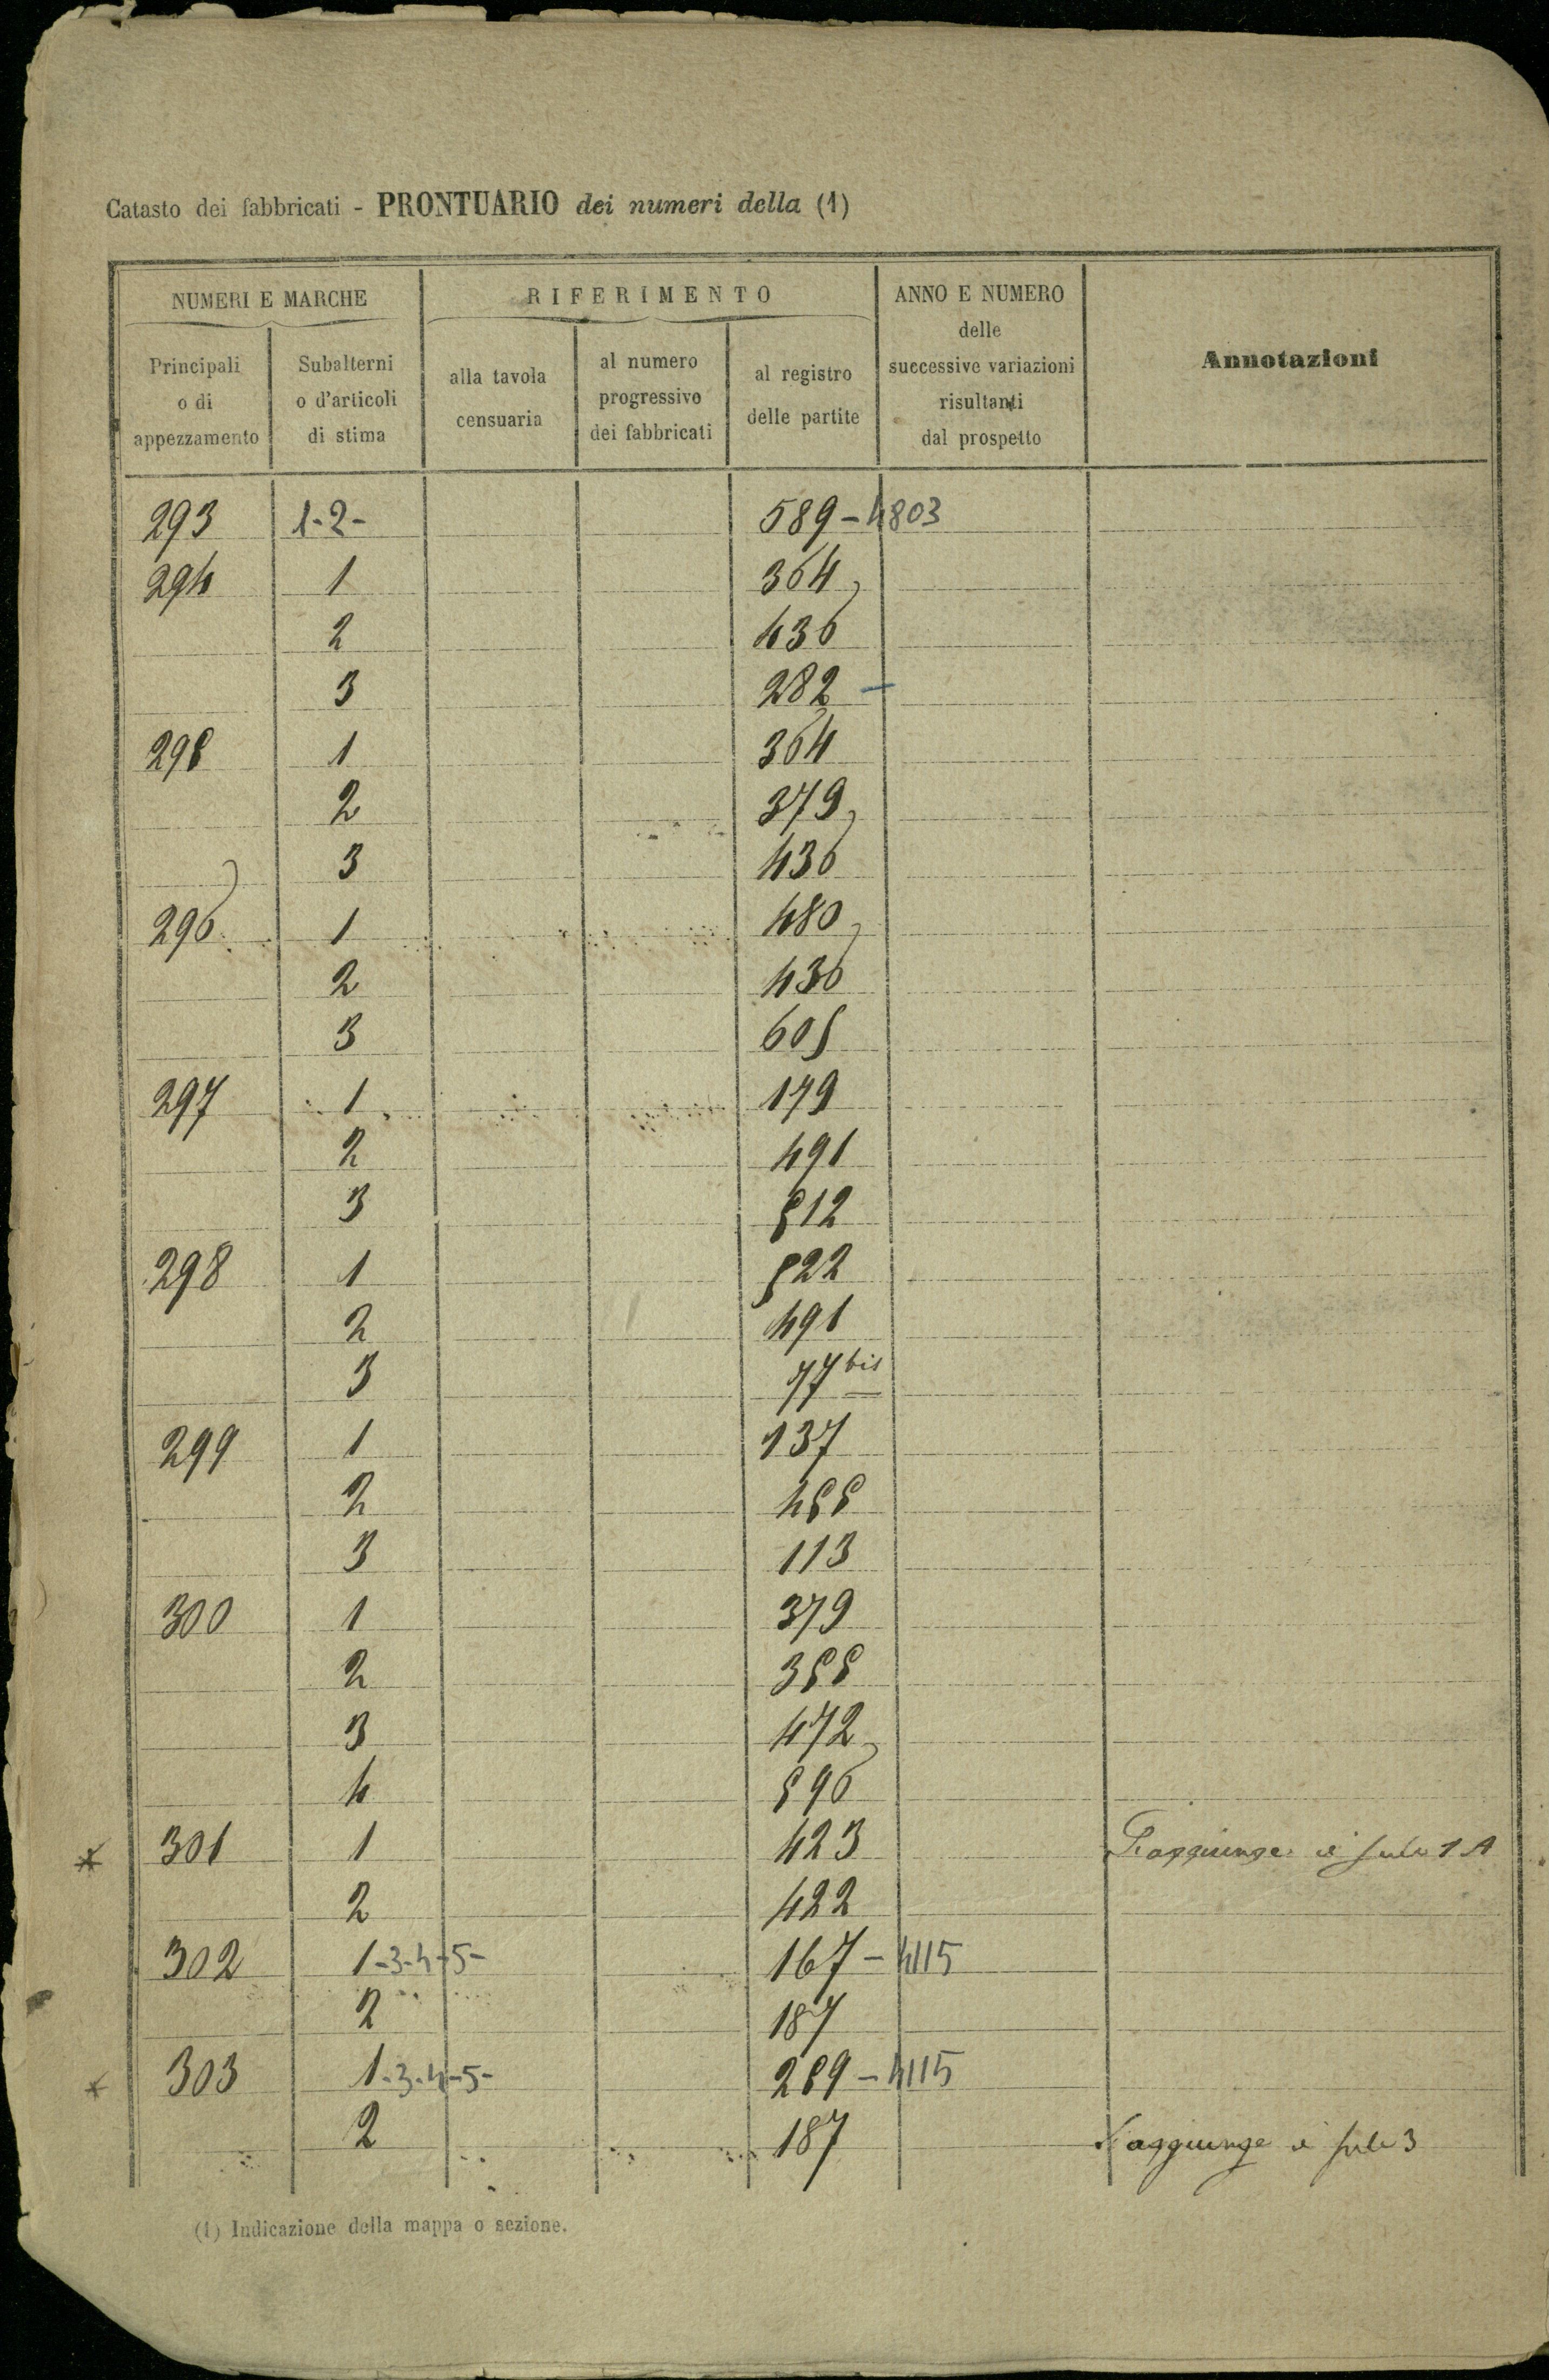 Catasto dei fabbricati - PRONTUARIO dei numeri della (1)
NUMERI E MARCHE
Principali o di appezzamento
Subalterni o d'articoli di stima
RIFERIMENTO
alla tavola censuaria
al numero progressivo dei fabbricati
al registro delle partite
ANNO E NUMERO delle successive variazioni risultanti dal prospetto
Annotazioni
293 1-2- 589 - 4803
294 1 364
2 436
3 282 -
295 1 364
2 379
3 436
296 1 480
2 436
3 605
297 1 179
2 491
3 512
298 1 522
2 491
3 77 bis
299 1 137
2 455
3 113
300 1 379
2 355
3 472
4 596
* 301 1 423 aggiunge il sub 1 A
2 422
302 1-3-4-5- 167 - 4115
2 187
* 303 1-3-4-5- 259 - 4115
2 187 aggiunge il sub 3
(1) Indicazione della mappa o sezione.